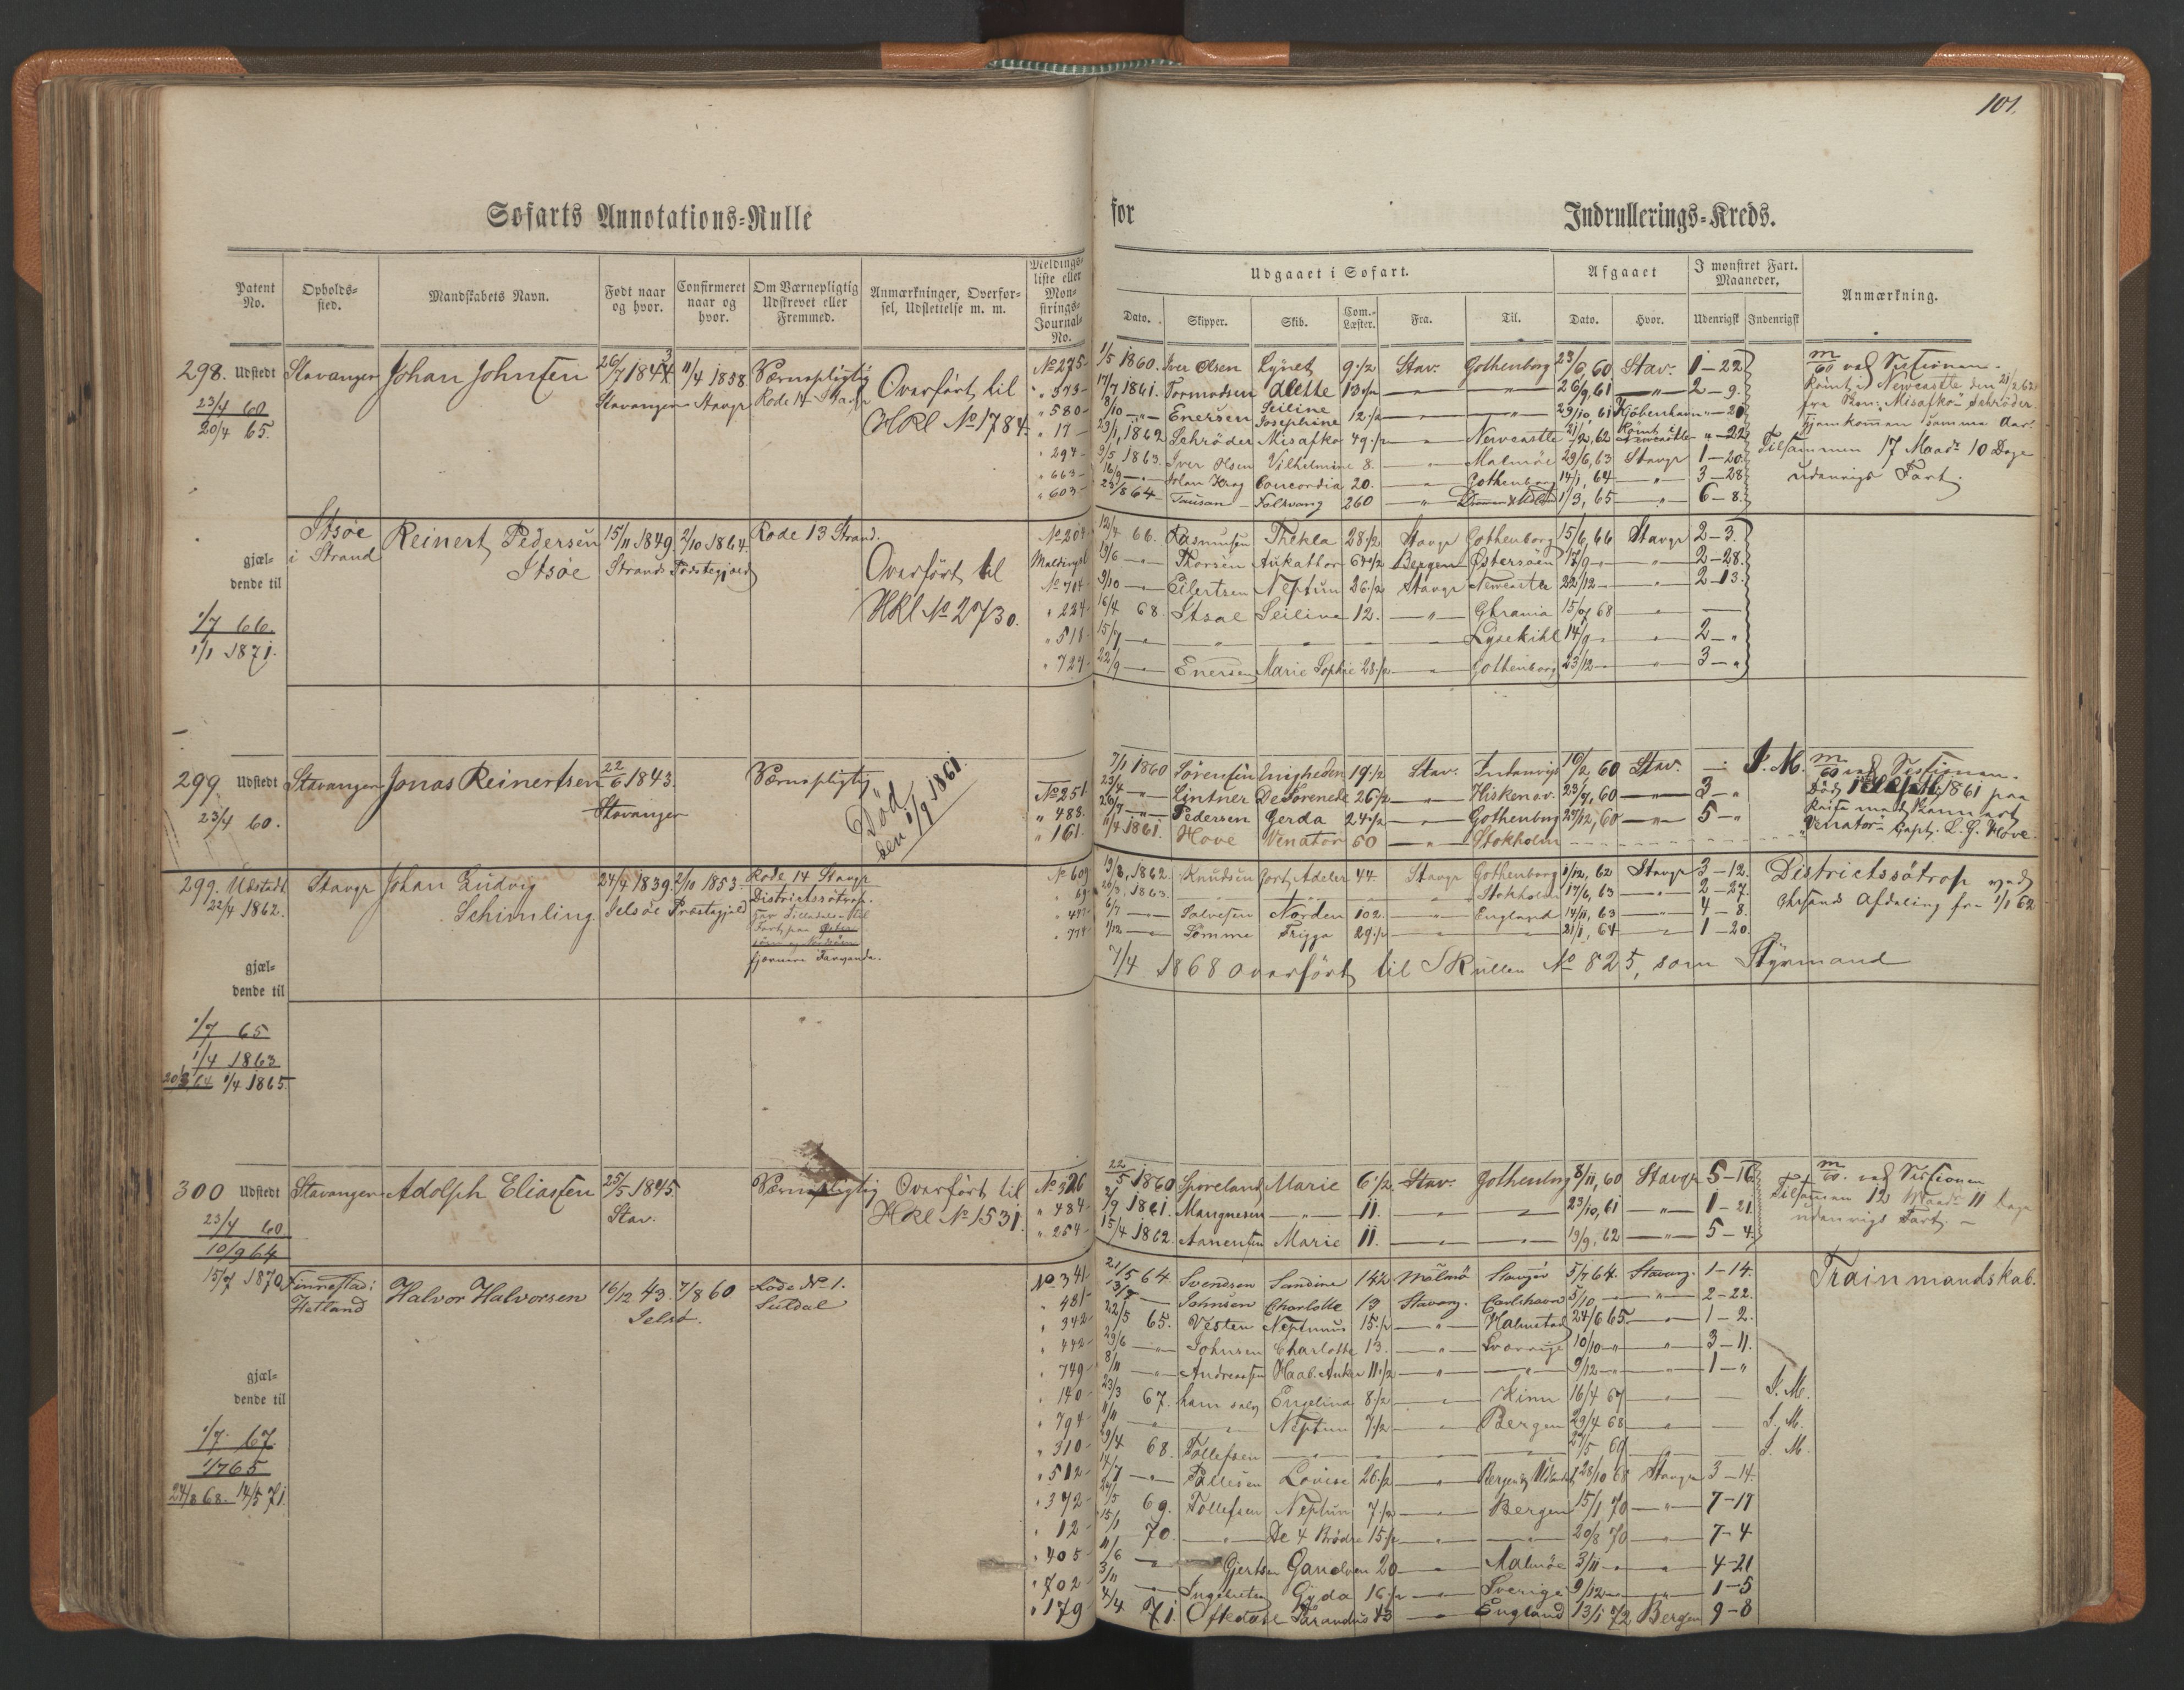 101.
Søfarts Annotations=Rulle for Indrullerings=Kreds.
Patent No.
Opholds=sted.
Mandskabets Navn.
Født naar og hvor.
Confirmeret naar og hvor.
Om Værnepligtig Udskrevet eller Fremmed.
Anmærkninger, Overførsel, Udslettelse m. m.
Meldings=liste eller Mønstrings=Journal=No.
Udgaaet i Søfart.
Dato. Skipper. Skib. Com.=Læster. Fra. Til.
Afgaaet
Dato. Hvor.
I mønstret Fart. Maaneder.
Udenrigsk Indenrigsk
Anmærkning.
298. Udstedt Stavanger Johan Johnsen 26/7 1844 11/4 1858 Værnepligtig
Stavanger Stavgr Rode 14 Stavgr
23/4 60
20/4 65.
Overført til
HRl No 1784.
No 275 1/5 1860. Iver Olsen Lynet 9 1/2 Stav. Gothenborg 23/6 60 Stav. 1-22
" 373 17/7 1861. Tormodsen Alette 13 1/2 " " 26/9, 61 " 2-9.
" 580 8/10 " Enersen Seiline Josephine 12 1/2 " " 29/10, 61 Kjøbenhavn "-20
" 17 29/1, 1862 Schrøder Misafko 49 1/2 " Newcastle 21/2, 62 Rømt i Newcastle "-22
" 294 9/5 1863. Iver Olsen Vilhelmine 8. " Malmøe 29/6, 63 Stavgr 1-20
" 663 16/9 " Krog Concordia 20. " Gothenborg 14/1, 64 " 3-28
" 603 25/8 64 Folkvang 260 " 1/3, 65 " 6-8.
m/60 ved Sessionen.
Rømt i Newcastle den 21/2 62
fra Skon. "Misafko" Schrøder.
Hjemkommen samme Aar.
Tilsammen 17 Maadr 10 Dage
udenrigs Fart.
Itsøe i Strand Reinert Pedersen Itsøe 15/11 1849. 2/10 1864. Rode 13 Strand.
Strands Præstegjæld
gjæl=
dende til
1/7 66.
1/1 1871.
Overført til
HRl No 2730.
No 204 12/4 66. Rasmussen Thekla 28 1/2 Stavgr Gothenborg 15/6, 66 Stavgr 2-3.
19/6 " Thorsen Aukathor 64 1/2 Bergen Østersøen 17/9 " " 2-28.
No 704 9/10 " Eilertsen Neptun 26 1/2 Stavgr Newcastle 22/12 " " 2-13.
" 224 16/4 68. Itsøe Seiline 12. " 15/7 68 "
" 518 15/7 " " " " " Lysekihl 14/9 " " 2-"
" 724 22/9 " Enersen Marie Sophie 28 1/2 " Gothenborg 23/12 " " 3-"
299 Udstedt Stavanger Jonas Reinertsen 22/6 1843. Værnepligtig
Stavanger
23/4 60.
Død
den 1/9 1861.
7/1 1860 Sørensen Enigheden 19 1/2 Stav. Indenrigs 16/2, 60 Stav. - I. M.
No 251 23/4 " Lintner De Sørenede 26 1/2 " 23/7, 60 " 3-"
" 488. 26/7 " Pedersen Gerda 24 1/2 " Gothenborg 27/12, 60 " 5-"
" 161 11/4 1861. Hove Venator 60 " Stokholm
m/60 ved Sessionen.
Død 1861 paa
Reise med Skonnert
"Venator" Capt. L. G. Hove.
299. Udstedt Stavgr Johan Ludvig Schimling 24/4 1839. 2/10 1853. Rode 14 Stavgr
22/4 1862.
Jelsøe Præstegjæld
Districtssøtrop.
fjernere Farvande.
gjæl=
dende til
1/7 65
1/4 1863
1/4 1865.
No 609 19/8, 1862. Knudsen Cort Adeler 44. Stavgr Gothenborg 1/12, 62 Stavgr 3-12.
" 69 20/3, 1863. Stokholm 17/6, 63 " 2-27.
6/7 " Salvesen Norden 102. " England 14/11, 63 " 4-8.
1/12 " Sømme Frigga 29 1/2 " " 21/1, 64 " 1-20.
Districtssøtrop ved
Chrsands Afdeling fra 1/1 62
7/4 1868 overført til S Rullen No 825, som Styrmand
300 Udstedt Stavanger Adolph Eliassen 25/5 1845. Værnepligtig
Stav.
23/4 60
10/9 64
Overført til
HRl No 1531.
No 326 22/5 1860 Sporeland Marie 6 1/2 Stav. Gothenborg 8/11, 60 Stavgr 5-16
" 484 2/9 1861. Mangnesen " 11. " " 23/10, 61 " 1-21
" 254 15/4 1862. Aanensen Marie 11. " " 19/9, 62 " 5-4.
m/60. ved Sessionen
Tilsamen 12 Maadr 11 Dage
udenrigs Fart.
15/7 1870 Finnestad i Hetland Halvor Halvorsen 16/12 43. 7/8 60 Rode No 1. Suldal
Jelsø.
gjæl=
dende til
1/7 67.
1/7 65
24/8 68. 14/5 71.
No 341 21/5 64 Svendsen Sandine 142 Malmø Stavgr 5/7 64. Stavang. 1-14.
" 481 13/8 " Johnsen Charlotte 13 Stavang. Carlshavn 5/10 " " 2-22.
" 342 22/5 65. Vesten Neptunus 15 1/2 " Halmstad 24/6 65. " 1-2.
" 442 29/6 " Johnsen Charlotte 13. " Sverrige 10/10 " " 3-11.
" 749 8/11 " Andreassen Haab. Anker 11 1/2 " " 9/12 " " 1-"
" 140 23/3 67. ham selv Engelina 8 1/2 " Kinn 16/4 67 " I. M.
" 794 11/11 " " Neptun 7 1/2 " Bergen 29/4 68 " I. M.
" 310 29/4 68. Tollefsen " " " 27/5 68 " I. M.
" 512 14/7 " Pallesen Lovise 26 1/2 " 28/10 68 Stavgr 3-14.
" 372 69. Tollefsen Neptun 7 1/2 " Bergen 15/1 70 " 7-17
" 12 15/1 70. " De 4 Brødre 15 1/2 " " 20/8 70 " 7-4
" 405 11/6 " Gjertsen 20 " Malmøe 3/11 " " 4-21
" 702 3/11 " Gyda 16 1/2 " Sverige 9/12 " " 1-5
" 179 4/4 71. Oftedahl 43 " England 13/1 72 Bergen 9-8
Trainmandskab.